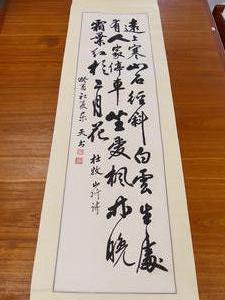 遠上寒山石徑斜白雲生處
有人家停車坐愛楓林晚
霜葉紅於二月花杜牧山行詩
天书